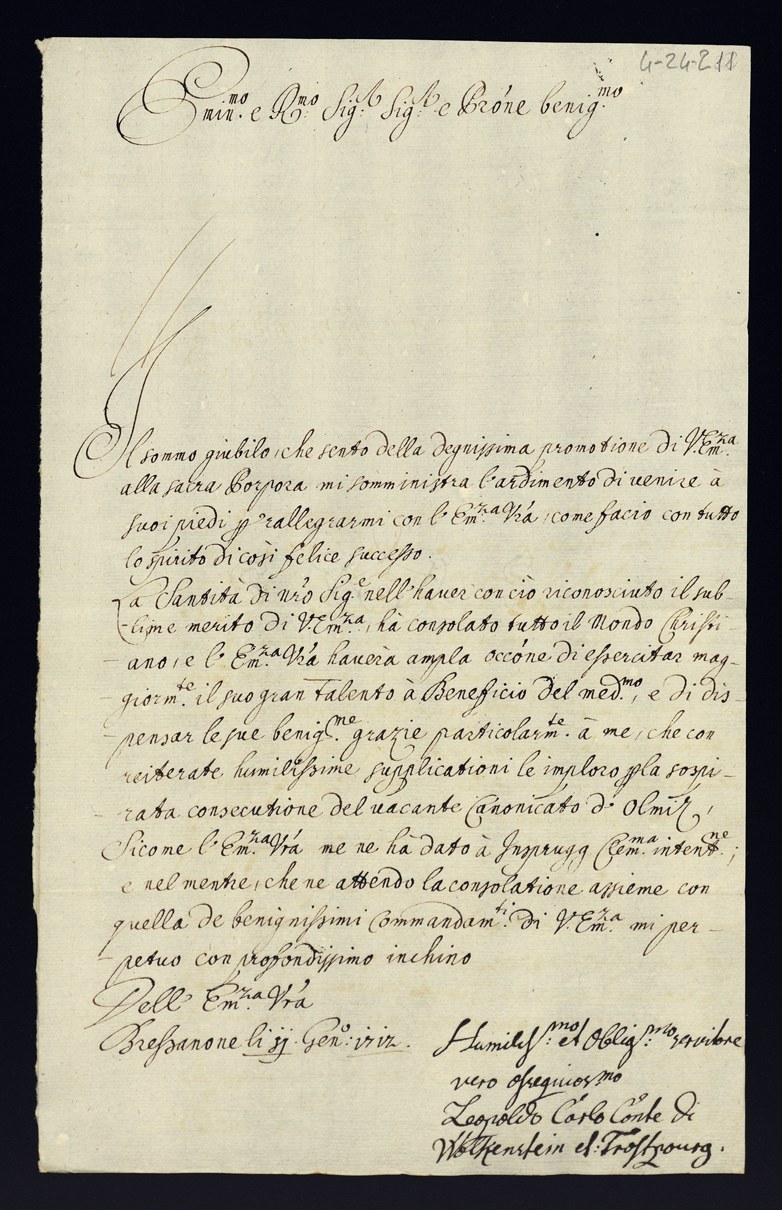 4-24-211
Emin.mo e R.mo Sig.r Sig.r e Prone benig.mo
Il sommo giubilo, che sento della degnissima promotione di V. Em.za
alla sacra Porpora mi somministra l'ardimento di venire à
suoi piedi p rallegrarmi con l'Em.za Vra, come facio con tutto
lo spirito di così felice successo.
La Santità di nro Sig.e nell'haver con ciò riconosciuto il sub-
-lime merito di V. Em.za, hà consolato tutto il Mondo Christi-
-ano, e l'Em.za Vra haverà ampla occone di essercitar mag-
-giorm.te il suo gran Talento à Beneficio del med.mo, e di dis-
-pensar le sue benig.me grazie particolarm.te à me, che con
reiterate humilissime supplicationi le imploro p la sospi-
-rata consecutione del vacante Canonicato d' Olmiz,
Sicome l'Em.za Vra me ne hà dato à Insprugg Clem.ma intent.ne;
e nel mentre, che ne attendo la consolatione assieme con
quella de benignissimi Commandam.ti di V. Em.za mi per-
-petuo con profondissimo inchino
Dell' Em.za Vra
Bressanone li jj. Gen.o: 1712.
Humiliss.mo et Oblig.mo servitore
vero ossequios.mo
Leopoldo Carlo Conte di
Wolkenstein et: Trostpourg.